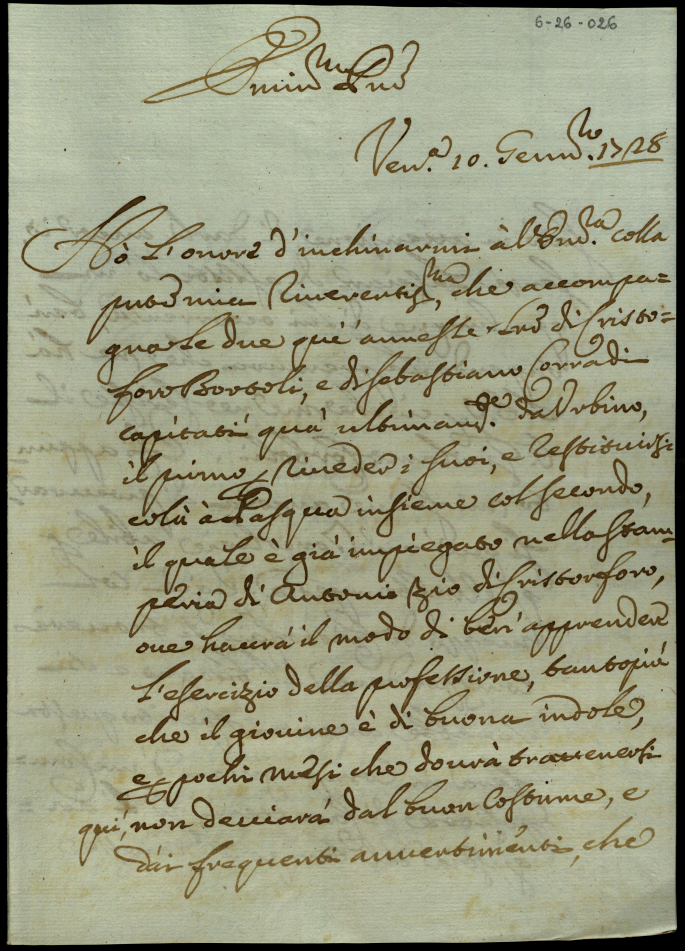 6-26-026
Emin.mo Pne
Ven.a 10. Genn.ro 1728
Hò l'onore d'inchinarmi à V. Em.a colla
pnte mia riverentis.ma, che accompa=
gna le due quì annesse lre di Cristo=
foro Bortoli, e di Sebastiano Corradi
capitati quà ultimam.te da Urbino,
il primo p riveder i suoi, e restituirsi
colà à Pasqua insieme col secondo,
il quale è già impiegato nella Stam=
peria di Antonio zio di Cristoforo,
ove haurà il modo di ben apprender
l'esercizio della professione, tantopiù
che il giovine è di buona indole,
e p pochi mesi che dovrà trattenersi
quì, non devierà dal buon costume, e
dai frequenti avvertimenti, che